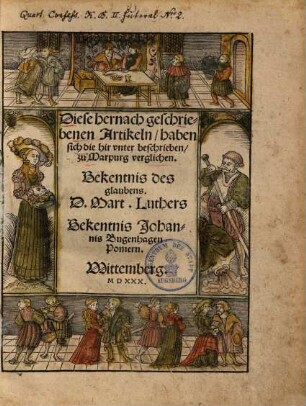 Diese hernach geschrie-
benen Artikeln / haben
sich die hir vnter beschrieben /
zu Marpurg verglichen.
Bekentnis des
glaubens.
D. Mart. Luthers
Bekentnis Johan-
nis Bugenhagen
Pomern.
Wittemberg.
M D XXX.